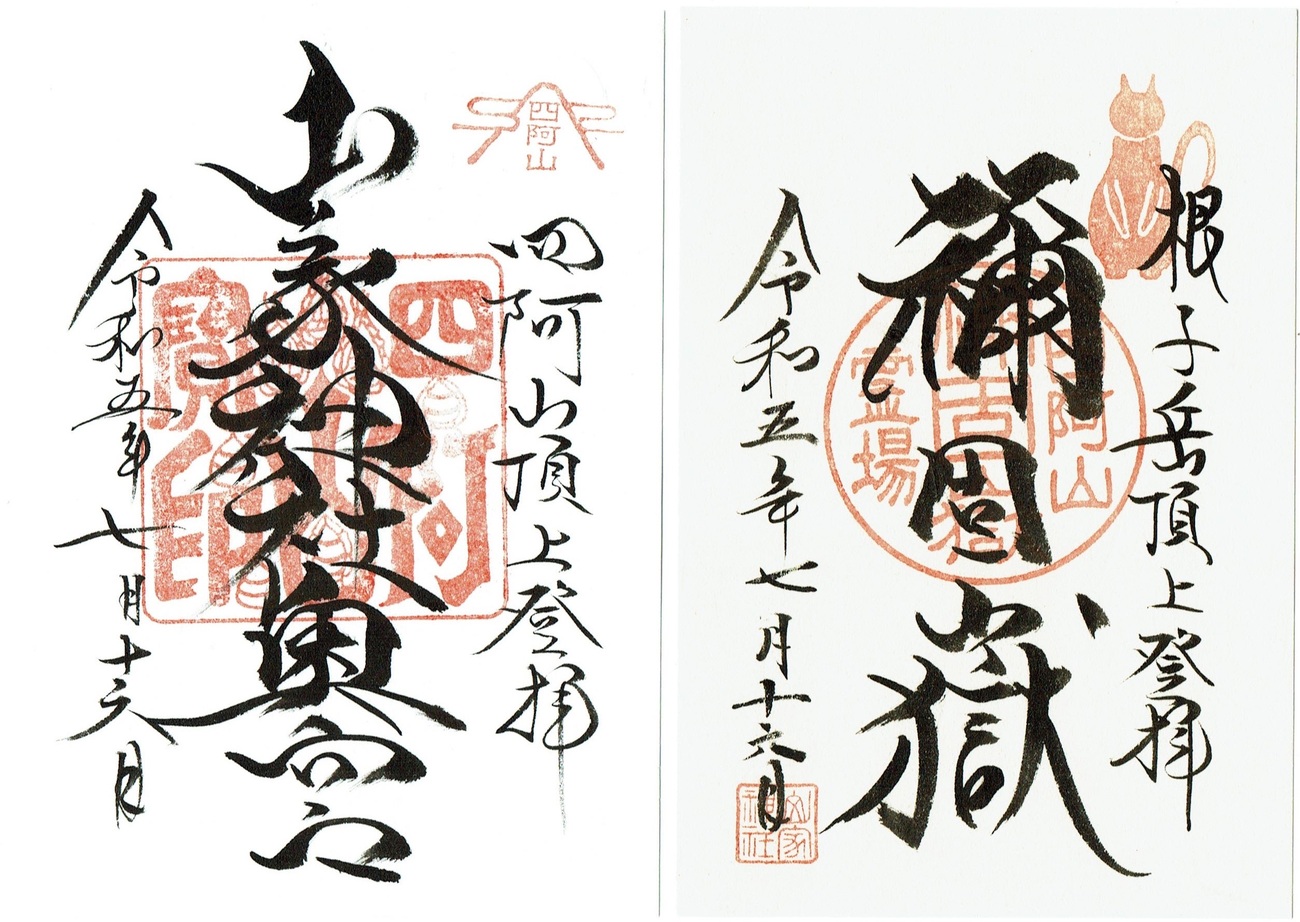 根子岳頂上登拝
禰固嶽
阿山
霊場
令和五年七月十六日
山家神社
四阿山
四阿山頂上登拝
山家神社奥宮
四阿
寶印
令和五年七月十六日